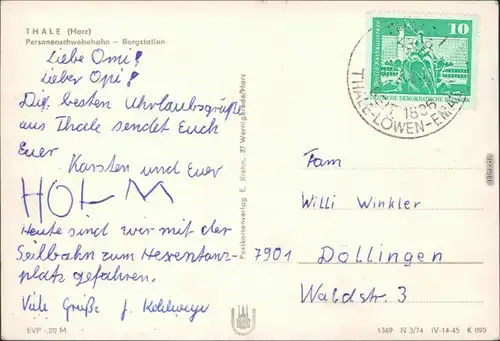 THALE (Harz)
Personenschwebebahn – Bergstation
Liebe Omi!
Lieber Opi!
Die besten Uhrlaubsgrüße
aus Thale sendet Euch
Euer
Karsten und Euer
HOLM
Heute sind wir mit der
Seilbahn zum Hexentanz-
platz gefahren.
Viele Grüße J.
EVP 1,20 M
Postkartenverlag E. Kiehn, 37 Wernigerode/Harz
10
DEUTSCHE DEMOKRATISCHE
SEIT 1835
THALE-LÖWEN-EMAIL
Fam
Willi Winkler
7901 Döllingen
Waldstr. 3
1349 N 3/74 IV-14-45 K 090